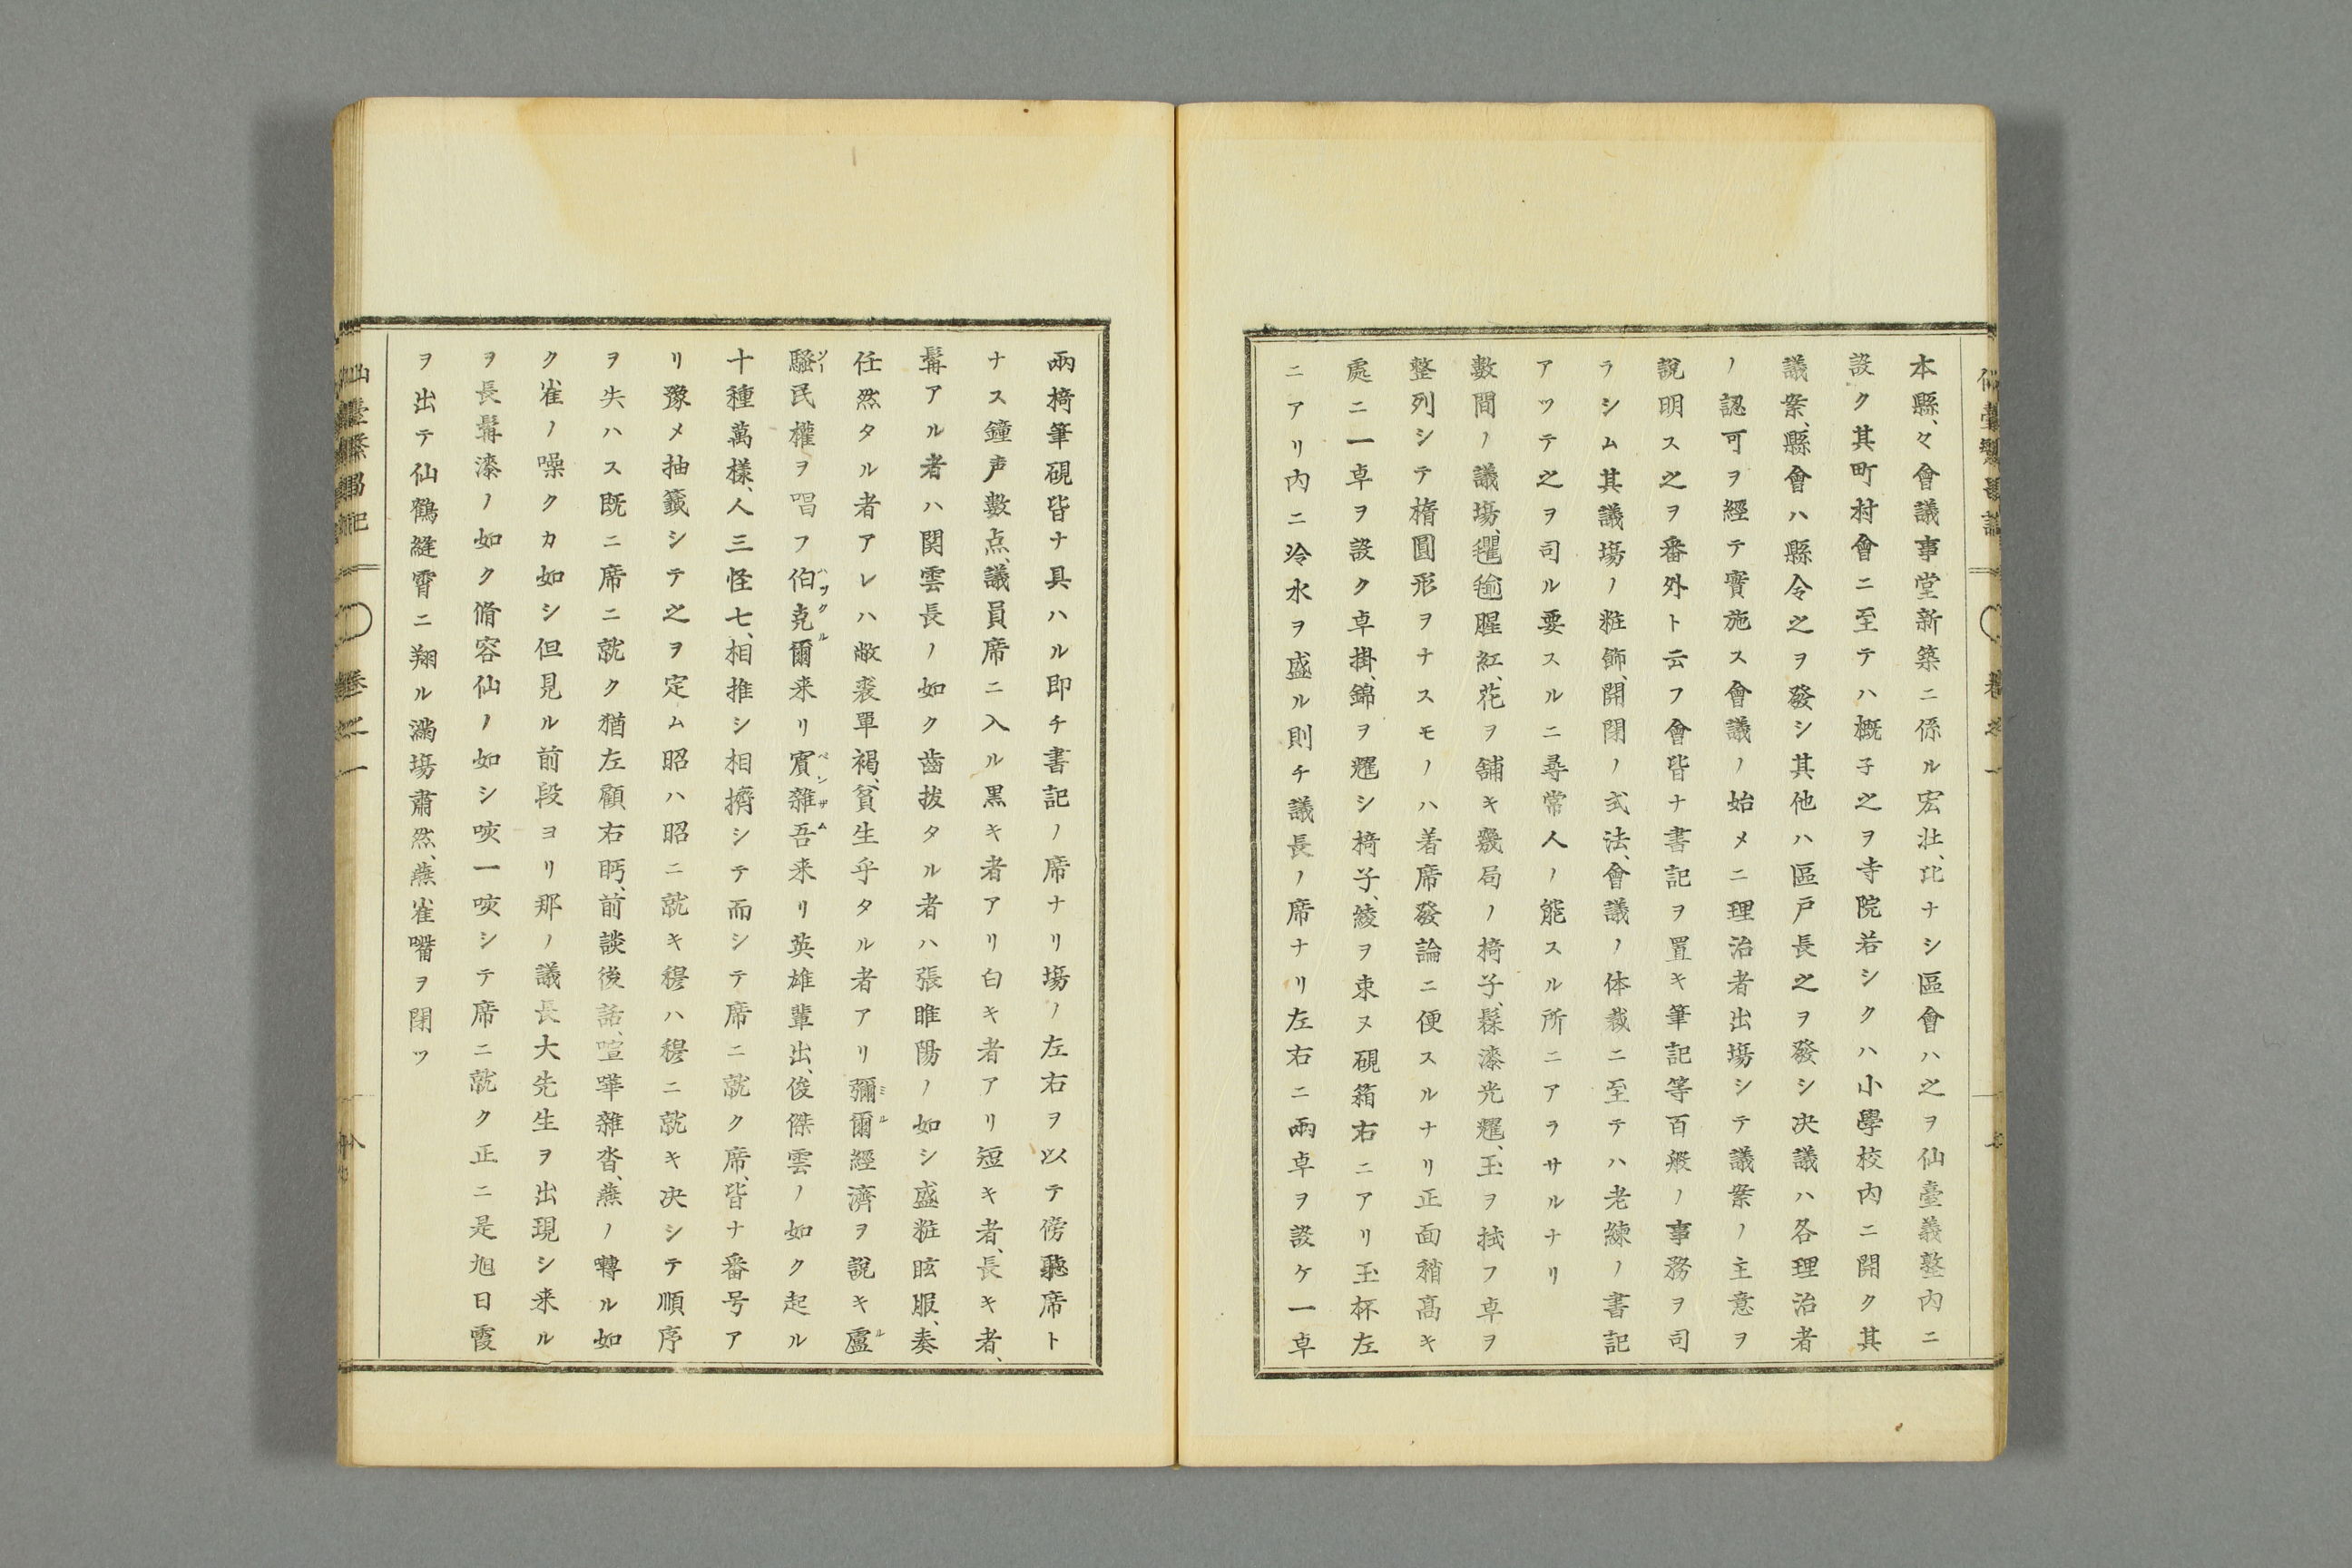 本縣、々會議事堂新築ニ係ル宏壯、比ナシ區會ハ之ヲ仙臺義塾内ニ
設ク其町村會ニ至テハ概子之ヲ寺院若シクハ小學校内ニ開ク其
議案、縣會ハ縣令之ヲ發シ其他ハ區戸長之ヲ發シ决議ハ各理治者
ノ認可ヲ經テ實施ス會議ノ始メニ理治者出塲シテ議案ノ主意ヲ
說明ス之ヲ番外ト云フ會皆ナ書記ヲ置キ筆記等百般ノ事務ヲ司
ラシム其議塲ノ粧飾、開閉ノ式法、會議ノ体裁ニ至テハ老練ノ書記
アツテ之ヲ司ル要スルニ尋常人ノ能スル所ニアラサルナリ
數間ノ議塲、氍毹腥紅、花ヲ舗キ幾局ノ椅子、髹漆光耀、玉ヲ拭フ卓ヲ
整列シテ楕圓形ヲナスモノハ着席發論ニ便スルナリ正面稍髙キ
處ニ一卓ヲ設ク卓掛、錦ヲ耀シ椅子、綾ヲ束ヌ硯箱右ニアリ玉杯左
ニアリ内ニ冷水ヲ盛ル則チ議長ノ席ナリ左右ニ兩卓ヲ設ケ一卓
兩椅筆硯皆ナ具ハル即チ書記ノ席ナリ塲ノ左右ヲ以テ傍聽席ト
ナス鐘声數点、議員席ニ入ル黒キ者アリ白キ者アリ短キ者、長キ者、
髯アル者ハ関雲長ノ如ク齒拔タル者ハ張睢陽ノ如シ盛粧眩服、奏
任然タル者アレハ敝裘單褐、貧生乎タル者アリ彌爾經濟ヲ說キ盧
騷民權ヲ唱フ伯克爾来リ賓雜吾来リ英雄輩出、俊傑雲ノ如ク起ル
十種萬樣、人三怪七、相推シ相擠シテ而シテ席ニ就ク席、皆ナ番号ア
リ豫メ抽籤シテ之ヲ定ム昭ハ昭ニ就キ穆ハ穆ニ就キ决シテ順序
ヲ失ハス既ニ席ニ就ク猶左顧右眄、前談後話、喧嘩雜沓、燕ノ囀ル如
ク雀ノ噪クカ如シ但見ル前段ヨリ那ノ議長大先生ヲ出現シ来ル
ヲ長髯漆ノ如ク脩容仙ノ如シ咳一咳シテ席ニ就ク正ニ是旭日霞
ヲ出テ仙鶴縫霄ニ翔ル滿塲肅然、燕、雀嘴ヲ閉ツ
卷之一